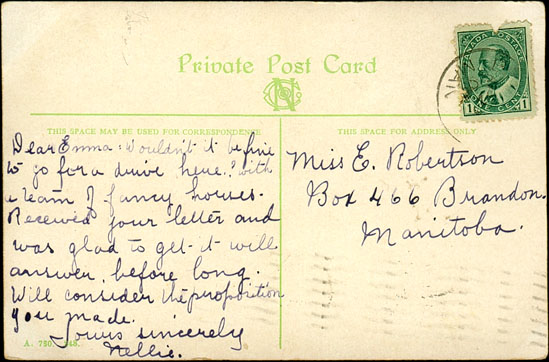 Private Post Card
CANADA POSTAGE
1 ONE CENT 1
THIS SPACE MAY BE USED FOR CORRESPONDENCE
THIS SPACE FOR ADDRESS ONLY
Dear Emma: Wouldn't it be fine
to go for a drive here? with
a team of fancy horses.
Received your letter and
was glad to get it will
answer before long.
Will consider the proposition
you made.
Yours sincerely
Nellie.
Miss E. Robertson
Box 466 Brandon.
Manitoba.
A. 750.